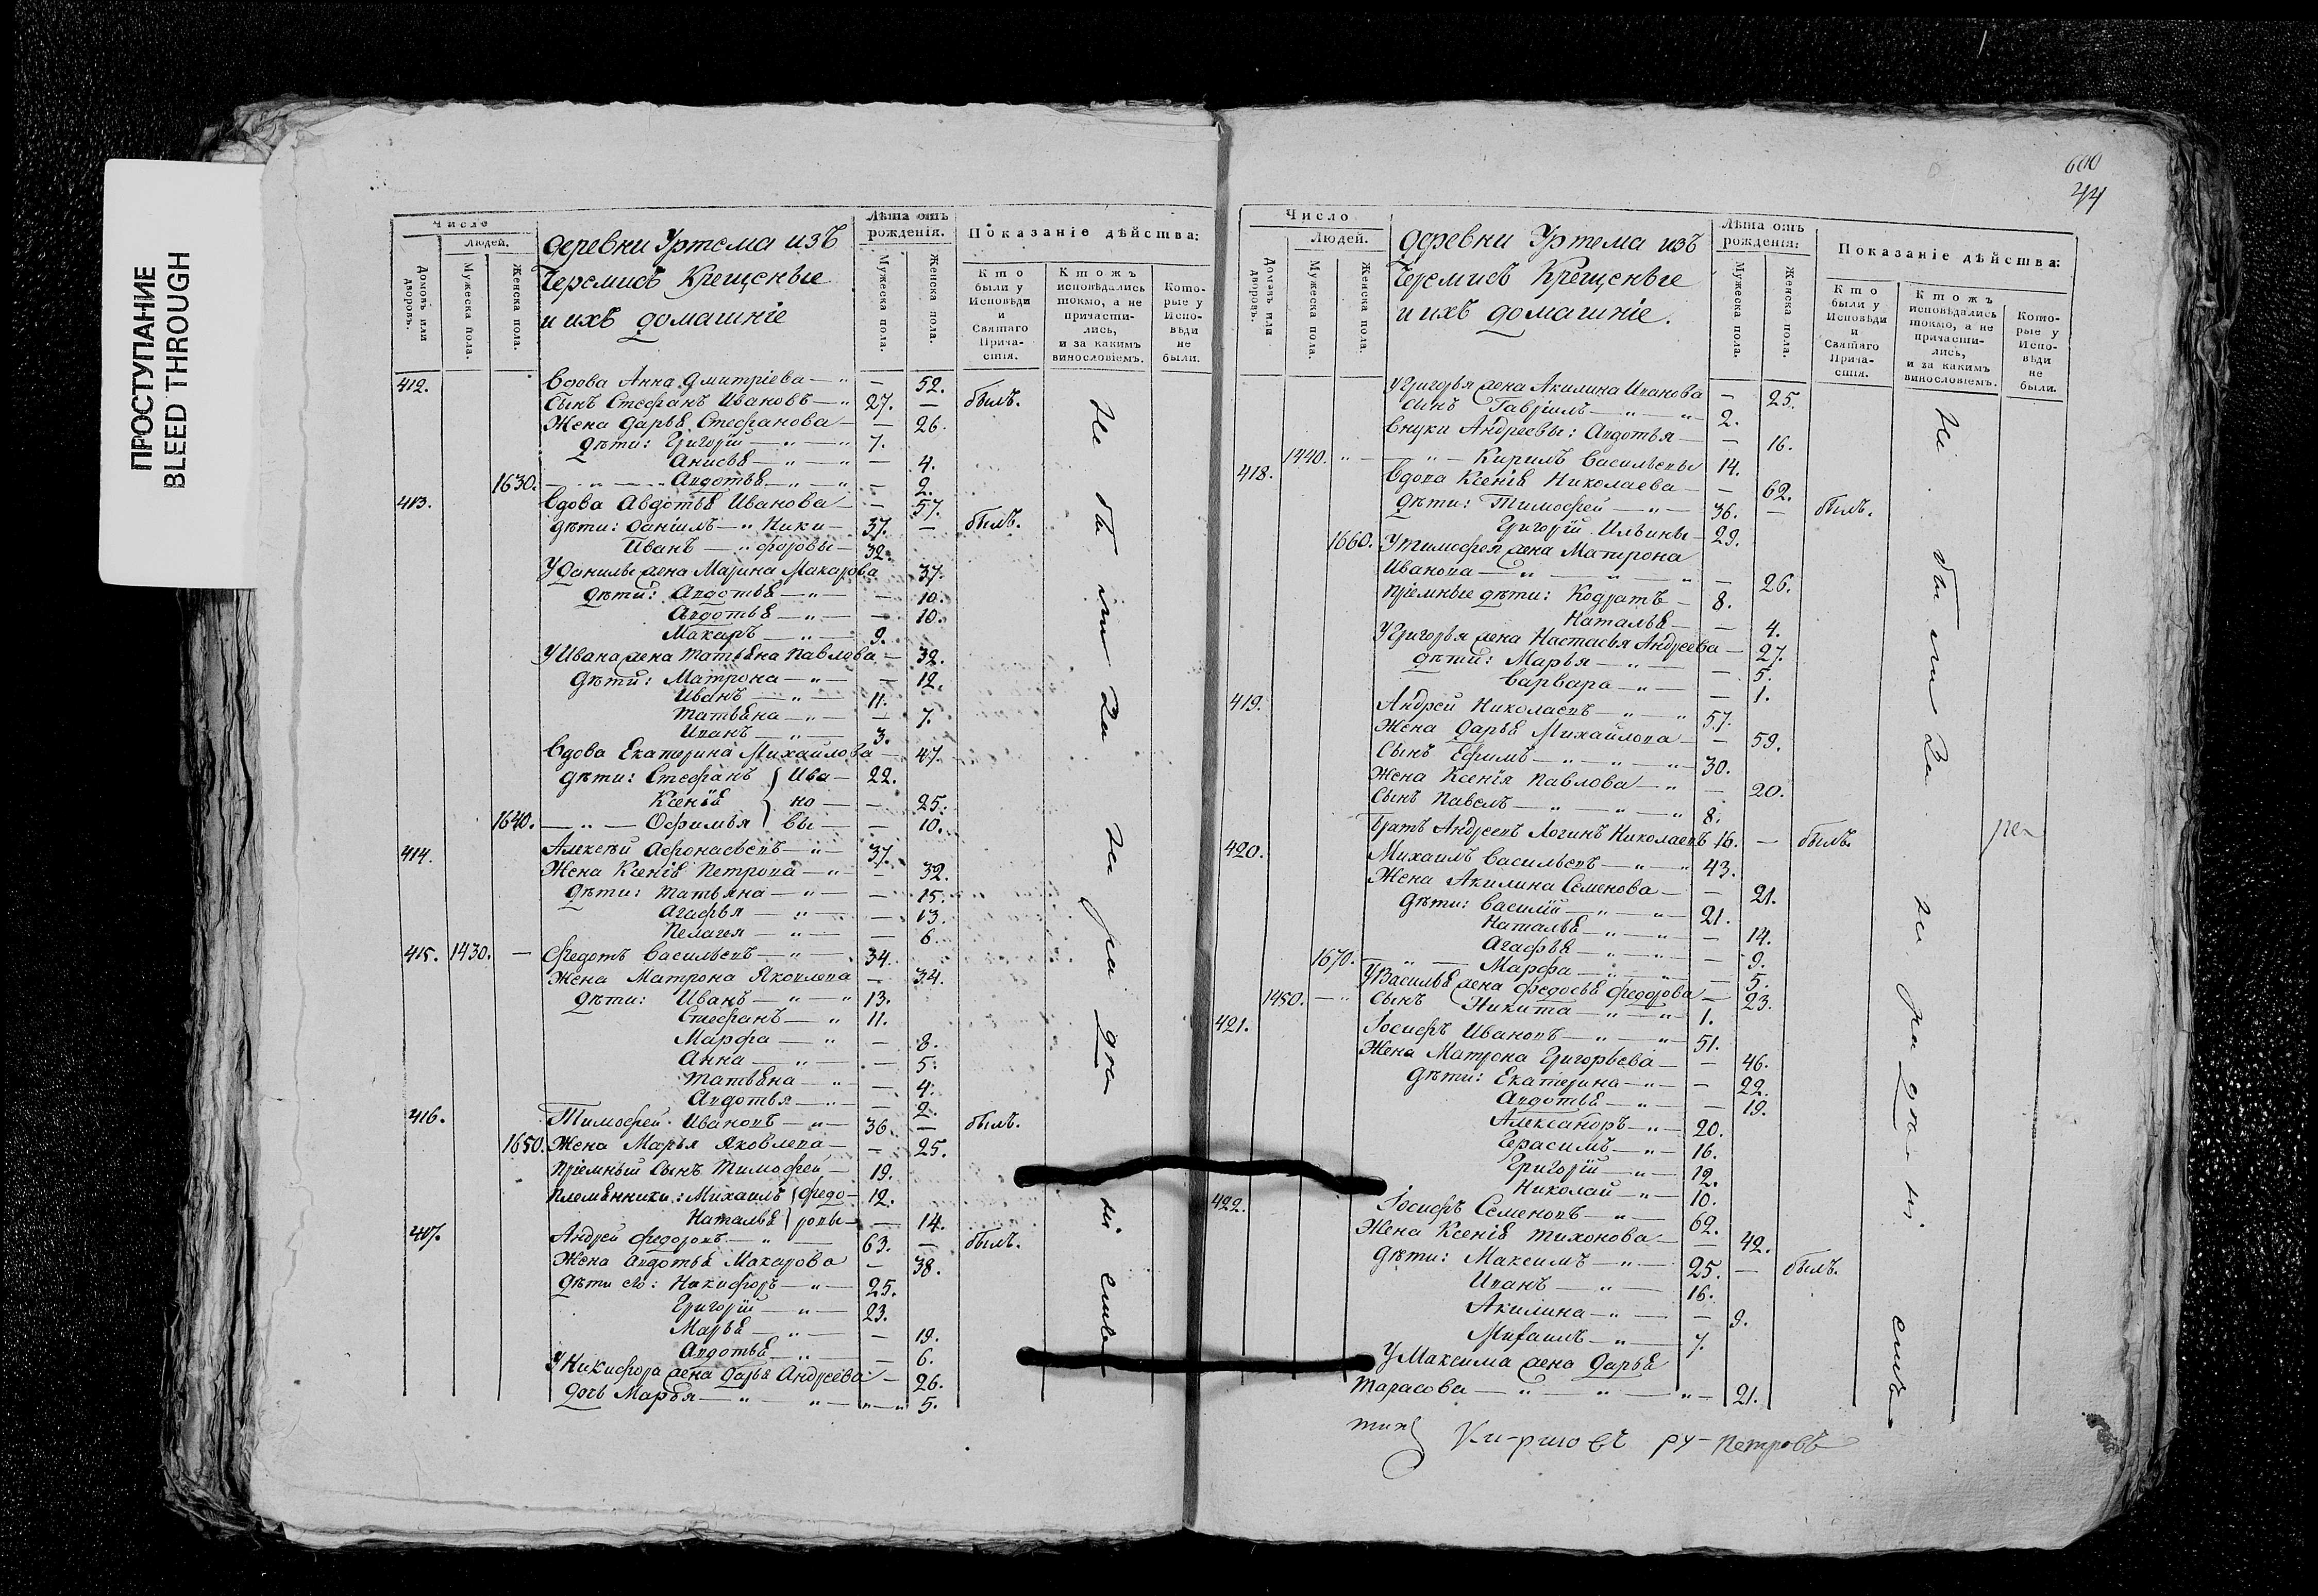 ПРОСТУПАНИЕ
BLEED THROUGH
Число
Людей.
Домовъ или дворовъ.
Мужеска пола.
Женска пола.
деревни Уртема изъ
Черемисъ Крещеные
и ихъ домашніе
Лѣта отъ рожденія.
Мужеска пола.
Женска пола.
Показаніе дѣйства:
Кто были у Исповѣди и Святаго Причастія.
Ктожъ исповѣдались токмо, а не причастились, и за какимъ винословіемъ.
Которые у Исповѣди не были.
412. Вдова Анна Дмитріева — 52.
Сынъ Стефанъ Ивановъ 27. — былъ.
Жена Дарья Стефанова — 26.
Дѣти: Григорій 7.
Анисья — 4.
1630. Авдотья — 2.
413. Вдова Авдотья Иванова — 57.
дѣти: Даніилъ Ники 37. — былъ.
Иванъ форовы 32.
У Данилы жена Марина Макарова 37.
Дѣти: Авдотья — 10.
Авдотья — 10.
Макаръ 9.
У Ивана жена Татьяна Павлова — 32.
Дѣти: Матрона — 12.
Иванъ 11.
Татьяна — 7.
Иванъ 3.
Вдова Екатерина Михайлова — 47.
Дѣти: Стефанъ Ива 22.
Ксенія но — 25.
1640. Офимья вы — 10.
414. Алексѣй Афонасьевъ 37.
Жена Ксенія Петрова — 32.
Дѣти: Татьяна — 15.
Агафья — 13.
Пелагея — 6.
415. 1430. — Федотъ Васильевъ 34.
Жена Матрона Яковлева — 34.
Дѣти: Иванъ 13.
Стефанъ 11.
Марфа — 8.
Анна — 5.
Татьяна — 4.
Авдотья — 2.
416. Тимофей Ивановъ 36. — былъ.
1650. Жена Марья Яковлева — 25.
Пріемный Сынъ Тимофей 19.
Племянники: Михаилъ Федо 12.
Наталья ровы — 14.
417. Андрей Федоровъ 63. — былъ.
Жена Авдотья Макарова — 38.
Дѣти его: Никифоръ 25.
Григорій 23.
Марья — 19.
Авдотья — 6.
У Никифора жена Дарья Андреева — 26.
Дочь Марья 5.
600
44
Число
Людей.
Домовъ или дворовъ.
Мужеска пола.
Женска пола.
деревни Уртема изъ
Черемисъ Крещеные
и ихъ домашніе.
Лѣта отъ рожденія:
Мужеска пола.
Женска пола.
Показаніе дѣйства:
Кто были у Исповѣди и Святаго Причастія.
Ктожъ исповѣдались токмо, а не причастились, и за какимъ винословіемъ.
Которые у Исповѣди не были.
У Григорья жена Акилина Иванова — 25.
Сынъ Гавріилъ 2.
Внуки Андреевы: Авдотья — 16.
1440. Кирилъ Васильевы 14.
418. Вдова Ксенія Николаева — 62.
Дѣти: Тимофей 36. — былъ.
Григорій Ильины 29.
1660. У Тимофея жена Матрона
Иванова — 26.
Пріемные дѣти: Кодратъ 8.
Наталья — 4.
У Григорья жена Настасья Андреева — 27.
дѣти: Марья — 5.
Варвара — 1.
419. Андрей Николаевъ 57.
Жена Дарья Михайлова — 59.
Сынъ Ефимъ 30.
Жена Ксенія Павлова — 20.
Сынъ Павелъ 8.
Братъ Андреевъ Логинъ Николаевъ 16. — былъ.
420. Михаилъ Васильевъ 43.
Жена Акилина Семенова — 21.
Дѣти: Василій 21.
Наталья — 14.
Агафья — 9.
1670. Марфа — 5.
У Василья жена Федосья Федорова — 23.
1450. Сынъ Никита 1.
421. Іосифъ Ивановъ 51.
Жена Матрона Григорьева — 46.
Дѣти: Екатерина — 22.
Авдотья — 19.
Александръ 20.
Герасимъ 16.
Григорій 12.
Николай 10.
422. Іосифъ Семеновъ 62.
Жена Ксенія Тихонова — 42.
Дѣти: Максимъ 25. — былъ.
Иванъ 16.
Акилина — 9.
Михаилъ 7.
У Максима жена Дарья
Тарасова 21.
Петровъ